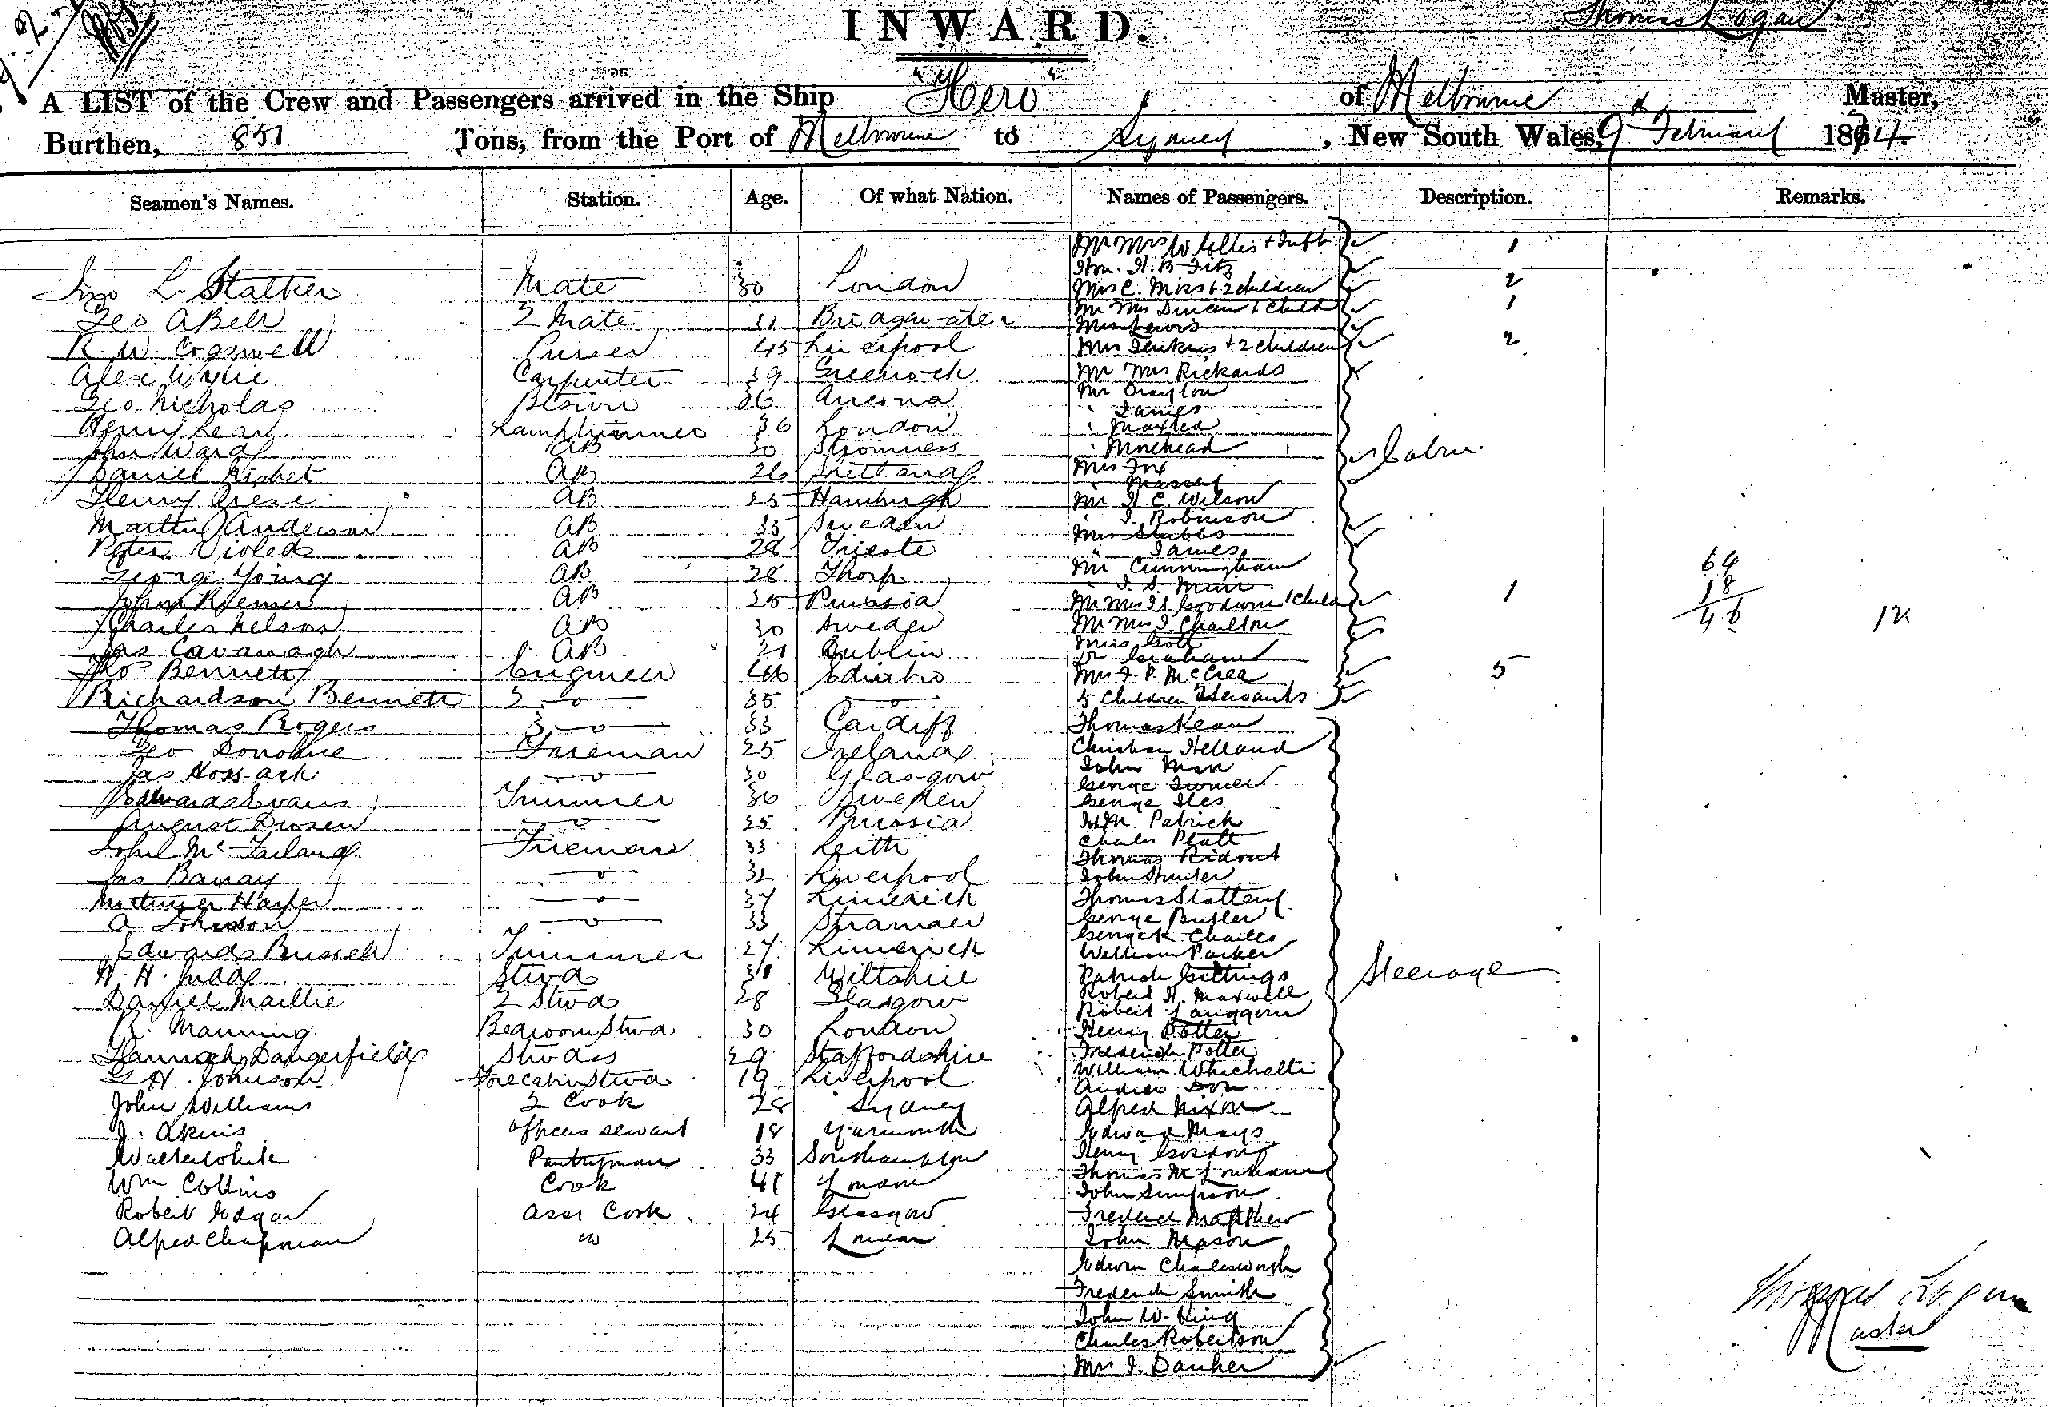 INWARD.
Thomas Logan
A LIST of the Crew and Passengers arrived in the Ship "Hero" of Melbourne Master,
Burthen, 851 Tons, from the Port of Melbourne to Sydney, New South Wales, 9th February 1874.
Seamen's Names. Station. Age. Of what Nation. Names of Passengers. Description. Remarks.
Mr Mrs W + Inft 1
Hon. H. B. Fitz
Jno L Stalker Mate 30 London Mrs C. Moss + 2 children 2
Geo A Bell 2 Mate 31 Bridgwater Mr Mrs Duncan & Child 1
Mrs Lewis
R. W. Cogswell Purser 45 Liverpool Mrs Jenkins + 2 children 2
Alex Wylie Carpenter 39 Greenock Mr Mrs Rickards
Geo Nicholas Bosun 36 Ancona Mr Drayton
" James
Henry Lean Lamptrimmer 36 London " Maxted
John Ward AB 30 Stromness " Morehead Cabin
Daniel AB 26 Shetland Mrs Fox
" Massey
Henry Giese AB 25 Hamburgh Mr H. C. Wilson
Martin Anderson AB 33 Sweden " J. Robinson
Mrs Stubbs
Peter AB 28 Trieste " James
George Young AB 28 Mr Cunningham 64
" J. S. Muir 18
John Riemer AB 25 Prussia Mr Mrs J S Goodwin 1 Child 1 46
Charles Nelson AB 30 Sweden Mr Mrs J. Charlton
Jas Cavanagh AB 31 Dublin Miss Scott
Dr Graham
Thos Bennett Engineer 46 Edinbro Mrs J. P. McCrea 5
Richardson Bennett 2 -o- 35 -o- 5 children 2 Servants
Thomas Rogers 3 -o- 33 Cardiff Thomas Kean
Geo Donohue Fireman 25 Ireland Christian Helland
Jas Hossack -o- 30 Glasgow John Mon
George Turner
Edward Evans Trimmer 36 Sweden George Iles
August -o- 25 Prussia Patrick
Charles Platt
John McFarland Fireman 33 Leith Thomas Ridout
Jas Barray -o- 32 Liverpool John Hunter
Mortimer Harper -o- 37 Limerick Thomas Slattery
A Johnson -o- 33 Stranraer George Butler
George Charles
Edward Trimmer 27 Limerick William Parker
H. H. Judd Stwd 31 Wiltshire Patrick Gittings Steerage
Daniel Maillie 2 Stwd 28 Glasgow Robert H. Maxwell
Robert
R. Manning Bedroom Stwd 30 London Henry Potter
Hannah Dangerfield Stwdss 29 Staffordshire Frederick Potter
G H. Johnson Forecabin Stwd 19 Liverpool William
Andrew
John Williams 2 Cook 28 Sydney Alfred Nixon
J. Akens Officers servant 18 Yarmouth Edward Mays
Walter White Pantryman 33 Southampton Henry
Thomas
Wm Collins Cook 41 London John Simpson
Robert Edgar Asst Cook 24 Glasgow Frederick Matthew
Alfred Chapman " 25 London John Mason
Edwin Charlesworth
Frederick Smith
Thomas Logan
John W. King
Master
Charles Robertson
Mrs J. Danker